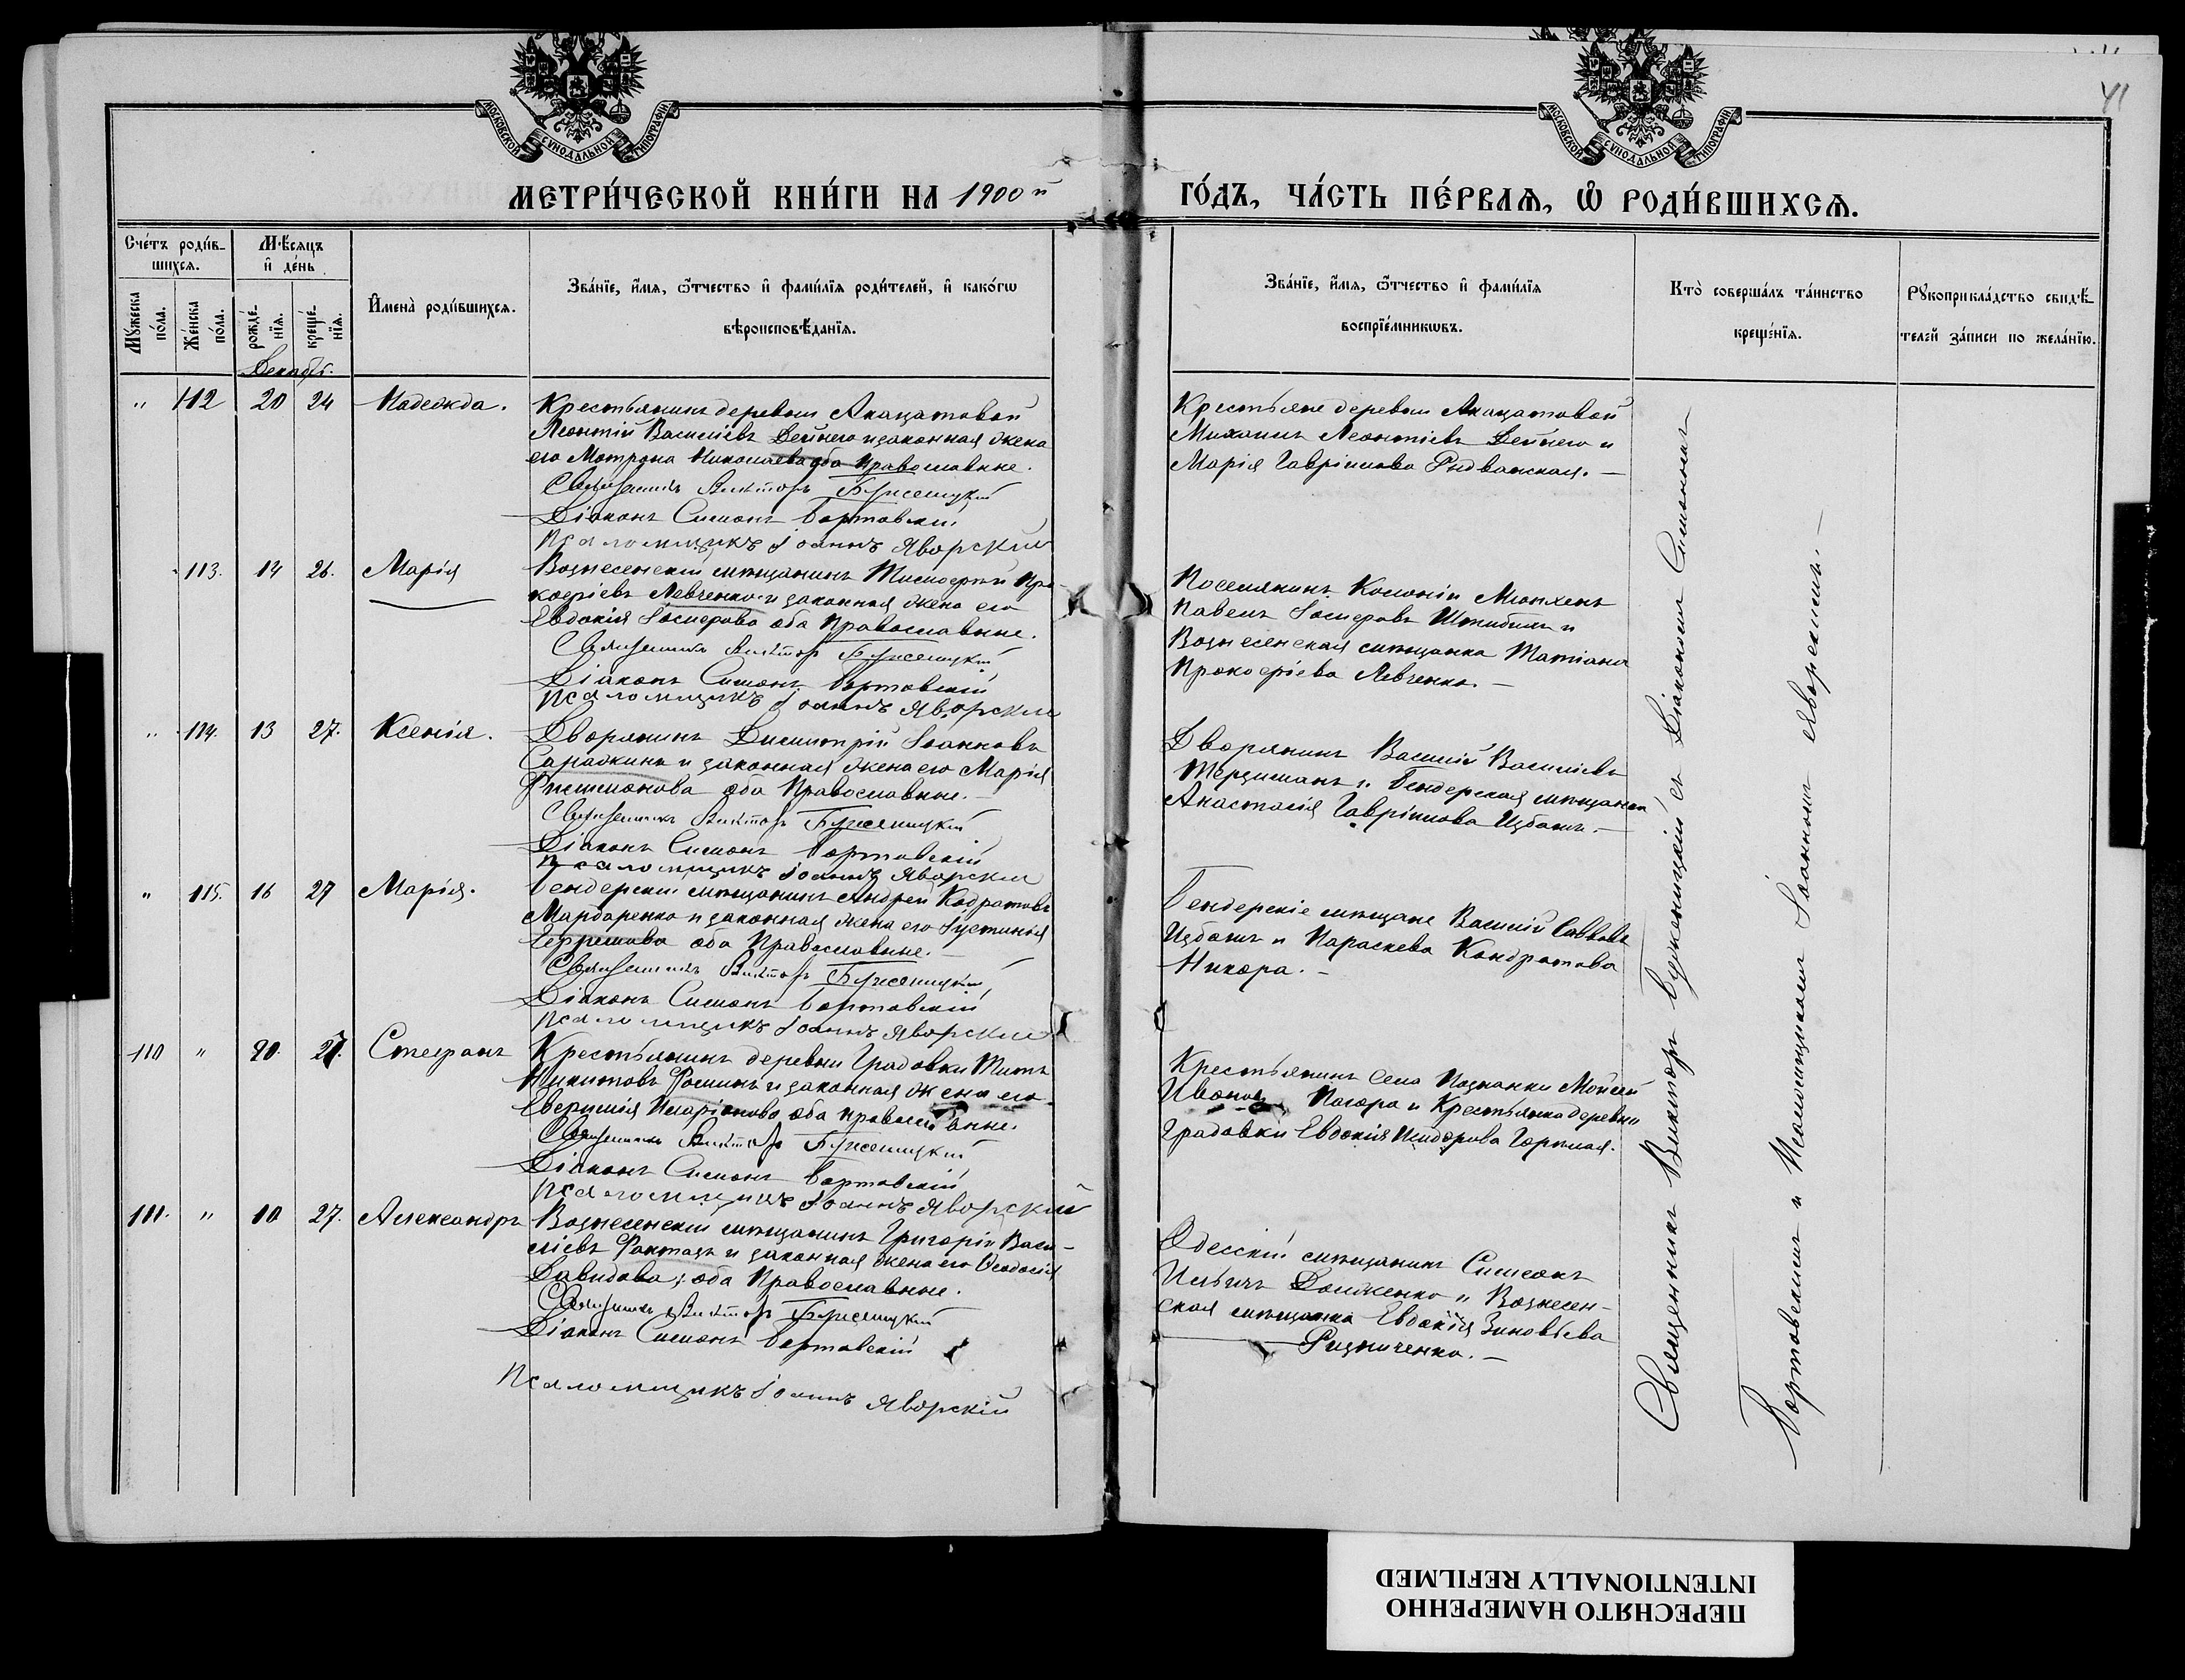 МОСКОВСКОЙ СѴНОДАЛЬНОЙ ТИПОГРАФІИ
МОСКОВСКОЙ СѴНОДАЛЬНОЙ ТИПОГРАФІИ
41
МЕТРИ́ЧЕСКОЙ КНИ́ГИ НА 1900й
ГО́ДЪ, ЧА́СТЬ ПЕ́РВАѦ, Ѡ РОДИ́ВШИХСѦ.
Сче́тъ роди́в-
шихсѧ.
Мꙋжеска по́ла.
Же́нска по́ла.
Мѣ́сяцъ
и де́нь
рожде́-
нїѧ.
креще́-
нїѧ.
Имена̀ роди́вшихсѧ.
Зва́нїе, и́мѧ, ѻ́тчество и фами́лїѧ роди́телей, и како́гѡ
вѣроисповѣ́данїѧ.
Зва́нїе, и́мѧ, ѻ́тчество и фами́лїѧ
воспрїе́мникѡвъ.
Кто̀ соверша́лъ та́инство
креще́нїѧ.
Рꙋкоприкла́дство свидѣ́-
телей за́писи по жела́нїю.
Декабр.
" 112 20 24 Надежда.
Крестьянинъ деревни Акацатовой
Леонтій Василіевъ Дейнего и законная жена
его Мотрона Николаева оба Православные.
Священникъ Викторъ Буженицкій
Діаконъ Симонъ Бортовскій
Псаломщикъ Іоаннъ Яворскій
Крестьяне деревни Акацатовой
Михаилъ Леонтіевъ Дейнего и
Марія Гавріилова Рыдванская.—
113. 14 26. Марія
Вознесенскій мѣщанинъ Тимоѳей Про-
кофіевъ Левченко и законная жена его
Евдокія Іосифова оба Православные.
Священникъ Викторъ Буженицкій
Діаконъ Симонъ Бортовскій
Псаломщикъ Іоаннъ Яворскій
Поселянинъ Колоніи Мюнхенъ
Павелъ Іосифовъ и
Вознесенская мѣщанка Татіана
Прокофіева Левченко.—
" 114. 13 27. Ксенія.
Дворянинъ Димитрій Іоанновъ
и законная жена его Марія
Филимонова оба Православные.—
Священникъ Викторъ Буженицкій
Діаконъ Симонъ Бортовскій
Псаломщикъ Іоаннъ Яворскій
Дворянинъ Василій Василіевъ
Терциманъ и Бендерская мѣщанка
Анастасія Гавріилова Избашъ.—
" 115. 16 27 Марія.
Бендерскій мѣщанинъ Андрей Кодратовъ
Мардаренко и законная жена его Іустинія
Ефремова оба Православные.—
Священникъ Викторъ Буженицкій
Діаконъ Симонъ Бортовскій
Псаломщикъ Іоаннъ Яворскій
Бендерскіе мѣщане Василій Саввовъ
Избашъ и Параскева Кондратова
Никора.—
110 " 20. 27. Стефанъ
Крестьянинъ деревни Градовки Титъ
Никитовъ Фоминъ и законная жена его
Евфимія оба православные.
Священникъ Викторъ Буженицкій
Діаконъ Симонъ Бортовскій
Псаломщикъ Іоаннъ Яворскій
Крестьянинъ села Познанки Мойсей
Ивановъ и Крестьянка деревни
Градовки Евдокія Исидорова
111. " 10 27. Александръ
Вознесенскій мѣщанинъ Григорій Васи-
ліевъ и законная жена его Ѳеодосія
Давидова; оба Православные.
Священникъ Викторъ Буженицкій
Діаконъ Симонъ Бортовскій
Псаломщикъ Іоаннъ Яворскій
Одесскій мѣщанинъ Симеонъ
Ильичъ Долженко и Вознесен-
ская мѣщанка Евдокія Зиновьева
Ризниченко.—
Священникъ Викторъ Буженицкій съ Діакономъ Симономъ
Бортовскимъ и Псаломщикомъ Іоанномъ Яворскимъ.—
ПЕРЕСНЯТО НАМЕРЕННО
INTENTIONALLY REFILMED